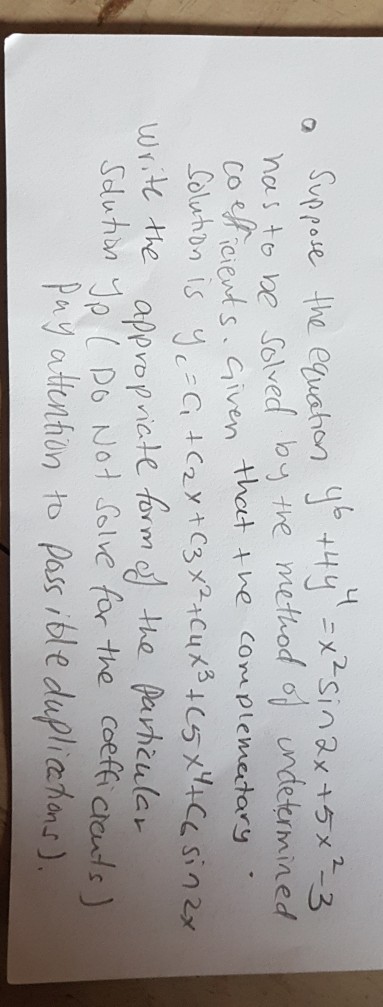 Suppose the equation y⁶ + 4y⁴ = x² sin2x + 5x² - 3
has to be solved by the method of undetermined
coefficients. Given that the complementary.
solution is y_c = c₁ + c₂x + c₃x² + c₄x³ + c₅x⁴ + c₆ sin2x
Write the appropriate form of the particular
solution y_p ( Do Not solve for the coefficients )
pay attention to possible duplications ).